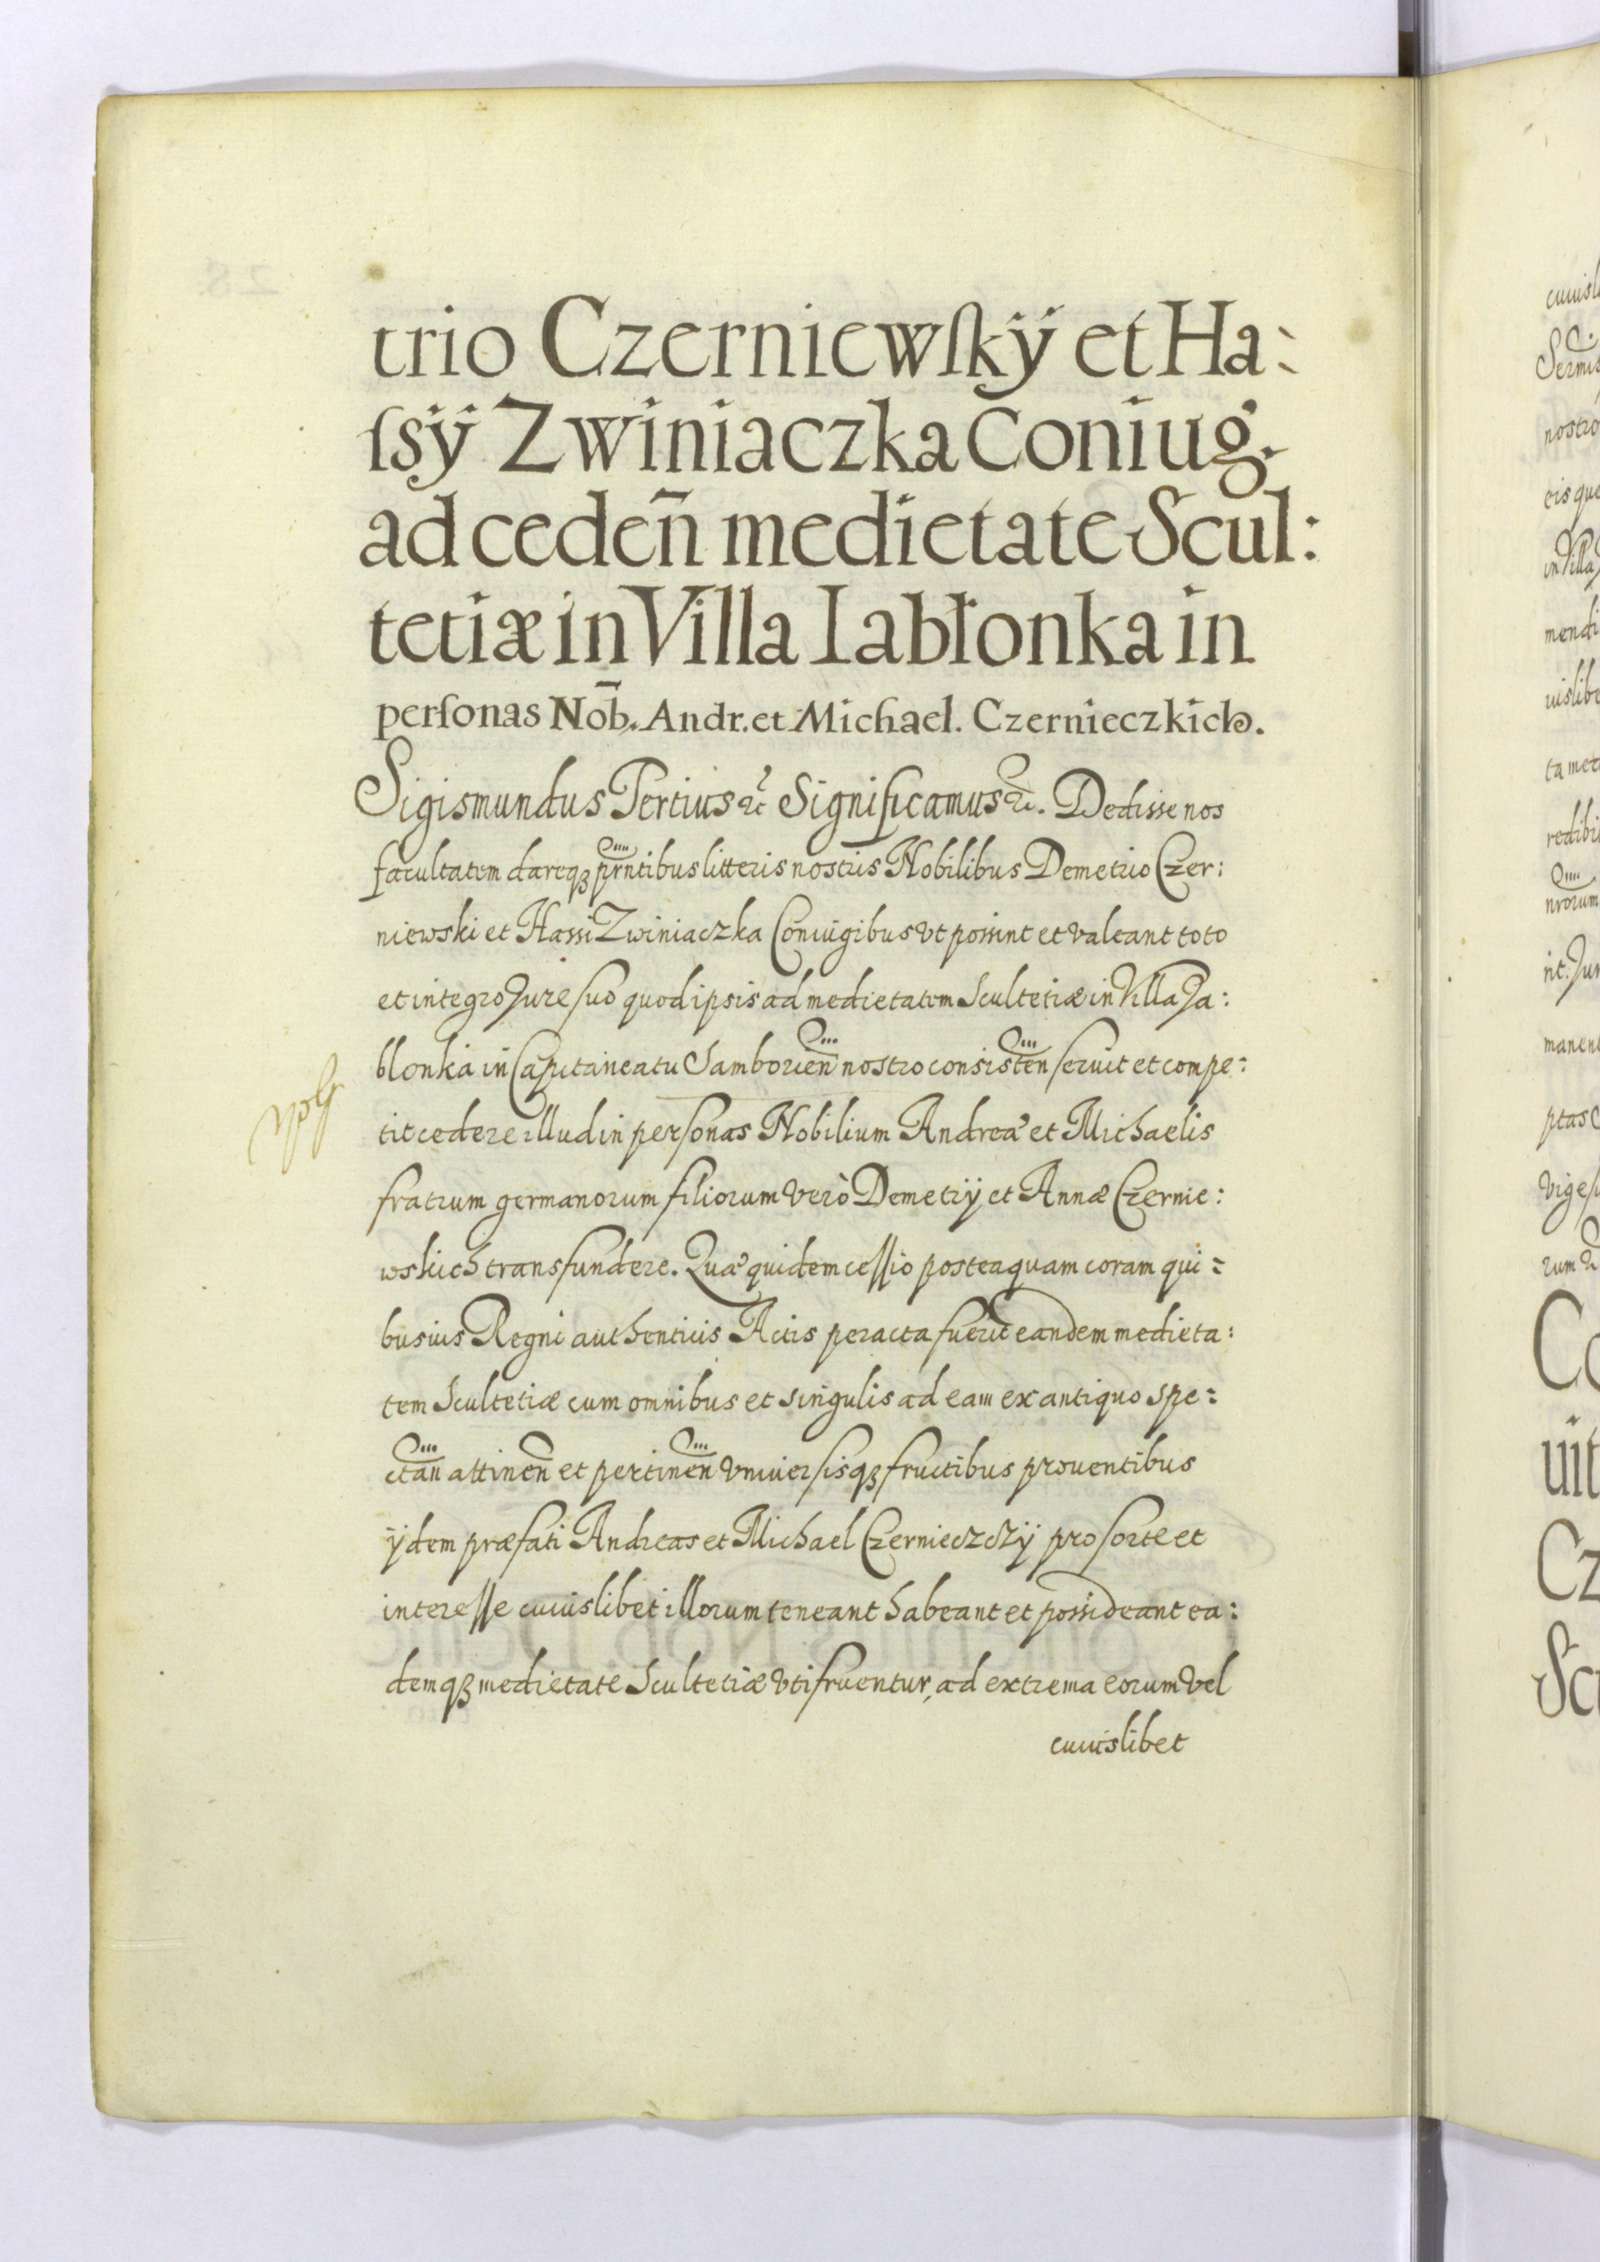 trio Czerniewſkÿ et Ha:
ſsÿ Zwiniaczka Coniug.
ad cedeñ medietate Scul:
tetiæ in Villa Iabłonka in
perſonas Nōb. Andr. et Michael. Czernieczkich.
Sigismundus Tertius etc Significamus etc. Dedisse nos
facultatem dareqꝫ prntibus litteris nostris Nobilibus Demetrio Czer:
niewski et Hassi Zwiniaczka Coniugibus vt possint et valeant toto
et integro Jure suo quod ipsis ad medietatem Scultetiæ in Villa Ja:
blonka in Capitaneatu Samborien̄ nostro consisten̄ seruit et compe:
tit cedere illud in personas Nobilium Andreæ et Michaelis
fratrum germanorum filiorum verò Demetrÿ et Annæ Czernie:
wskich transfundere. Quæ quidem cessio posteaquam coram qui:
busuis Regni authenticis Actis peracta fuerit eandem medieta:
tem Scultetiæ cum omnibus et singulis ad eam ex antiquo spe:
ctan̄ attinen̄ et pertinen̄ vniuersisqꝫ fructibus prouentibus
ÿdem præfati Andreas et Michael Czernieczczÿ pro sorte et
interesse cuiuslibet illorum teneant habeant et possideant ea:
demqꝫ medietate Scultetiæ vti fruentur, ad extrema eorum vel
cuiuslibet
cuiusl
nostro
eis que
in Villa
mendi
uislibe
ta met
redibi
nrorum
nt. Jur
manen
ptas
viges
rum
Co
uit
Cz
Scu